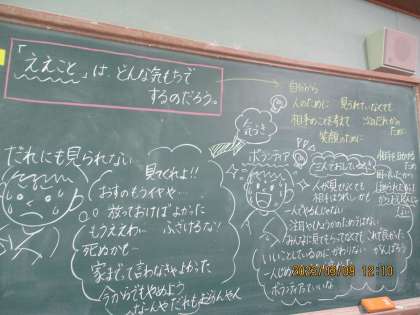 「ええこと」は、どんな気もちで
するのだろう。
自分から
人のために 見られていなくても
相手のことを考えて 次の人だから
笑顔のために
気づき
ボランティア
だれにも見られない
見てくれよ!!
おすのもうイヤや…
放っておけばよかった
もうええわ ふざけるな!
死ぬかも…
家まで、て言わなきゃよかった
今からでもやめよう
なーんや だれもおらんやん
人が見てなくても
相手はうれしかも
一人でやるんじゃない
注目やひょうかのためではない
みんなに見てもらってなくても これで良かった
いいことしているのにかわりない がんばろう
一人じめ
ボランティアていいな
2023/06/09 12:10